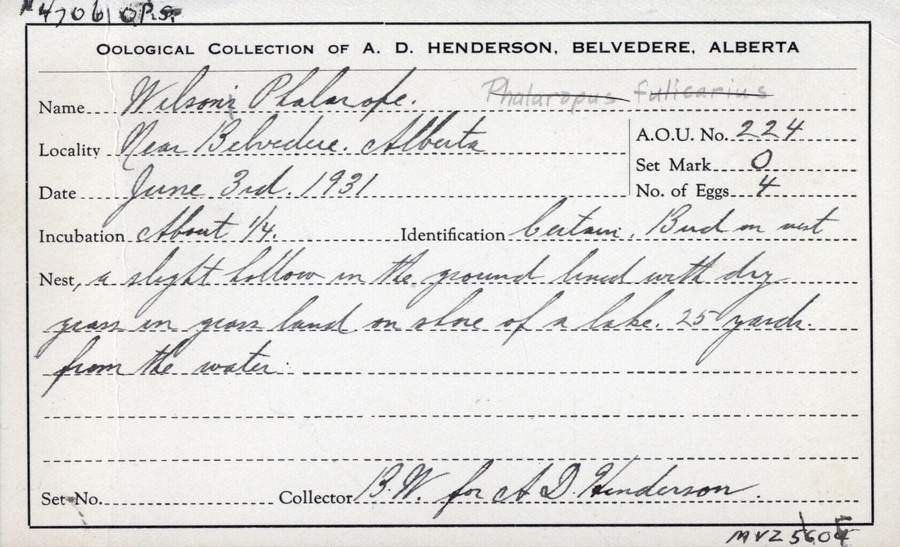 #4706 OPS.
OOLOGICAL COLLECTION OF A. D. HENDERSON, BELVEDERE, ALBERTA
Name Wilson's Phalarope. Phalaropus fulicarius
Locality Near Belvedere. Alberta A.O.U. No. 224
Set Mark 0
Date June 3rd. 1931 No. of Eggs 4
Incubation About 1/4. Identification Certain. Bird on nest
Nest, a slight hollow in the ground lined with dry
grass in grass land on shore of a lake. 25 yards.
from the water.
Set No. Collector B.W. for A D Henderson.
MVZ 5604